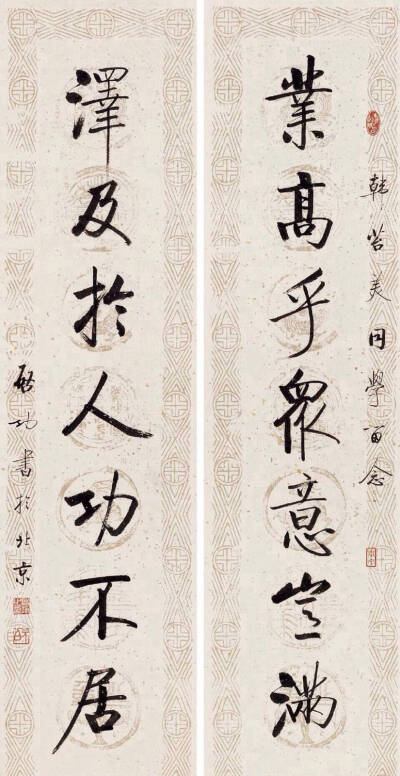 韓岩美同學留念
業高乎眾意豈滿
澤及於人功不居
啟功書於北京